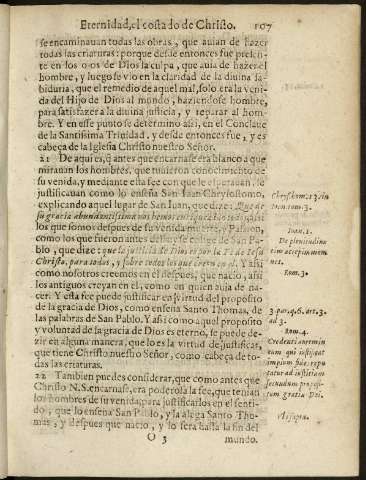 Eternidad, el costado de Christo. 107
se encaminauan todas las obras, que auian de hazer
todas las criaturas: porque desde entonces fue presen-
te en los ojos de Dios la culpa, que auia de hazer el
hombre, y luego se vio en la claridad de la diuina sa-
biduria, que el remedio de aquel mal, solo era la veni-
da del Hijo de Dios al mundo, haziendose hombre,
para satisfazer a la diuina justicia, y reparar al hom-
bre. Y en esse punto se determinò assi, en el Conclaue
de la Santissima Trinidad, y desde entonces fue, y es
cabeça de la Iglesia Christo nuestro Señor.
21 De aqui es, q̃ antes que encarnasse era blanco a que
mirauan los hombres, que tuuieron conocimiento de
su venida, y mediante esta fee con que le esperauan, se
justificauan como lo enseña San Iuan Chrysostomo,
explicando aquel lugar de San Iuan, que dize: Que de
su gracia abundantissima
los que somos despues de su venida muerte, y Passion,
como los que fueron antes
blo, que dize: que la justicia de Dios es por la Fe de Iesu
Christo, para todos, y sobre todos los que creen en el. Y assi
como nosotros creemos en el despues, que nacio, assi
los antiguos creyan en el, como en quien auia de na-
cer. Y esta fee puede justificar en virtud del proposito
de la gracia de Dios, como enseña Santo Thomas, de
las palabras de San Pablo. Y assi como aquel proposito
y voluntad de la gracia de Dios es eterno, se puede de-
zir en alguna manera, que lo es la virtud de justificar,
que tiene Christo nuestro Señor, como cabeça de to-
das las criaturas.
22 Tambien puedes considerar, que como antes que
Christo N.S. encarnasse, era poderosa la fee, que tenian
los hombres de su venida, para justificarlos en el senti-
do, que lo enseña San Pablo, y la alega Santo Tho-
mas, y despues que nacio, y lo sera hasta la fin del
O 3 mundo.
Chryshom. 13. in
Ioan. tom. 3.
Ioan. 1.
De plenitudine
eius accepimus om
nes.
Rom. 3.
3. par. q. 6. art. 3.
ad 3.
Rom. 4.
Credenti autem in
eum qui iustificat
impium fides repu
tatur ad iustitiam
secundum proposi-
tum gratiæ Dei.
Vt supra.